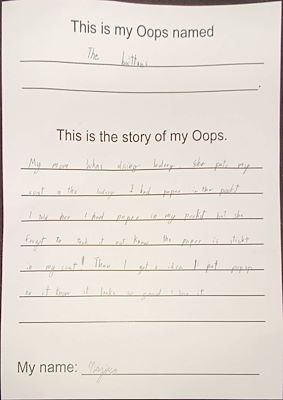 This is my Oops named
The buttons
This is the story of my Oops.
My mom whas doing lodery She put my
coat in the lodery I had paper in the pockit
I told her I had paper in my pockit but she
forgot to took it out know the paper is stickt
in my coat! Then I got a idea I put
on it know it looks so good I love it
My name: